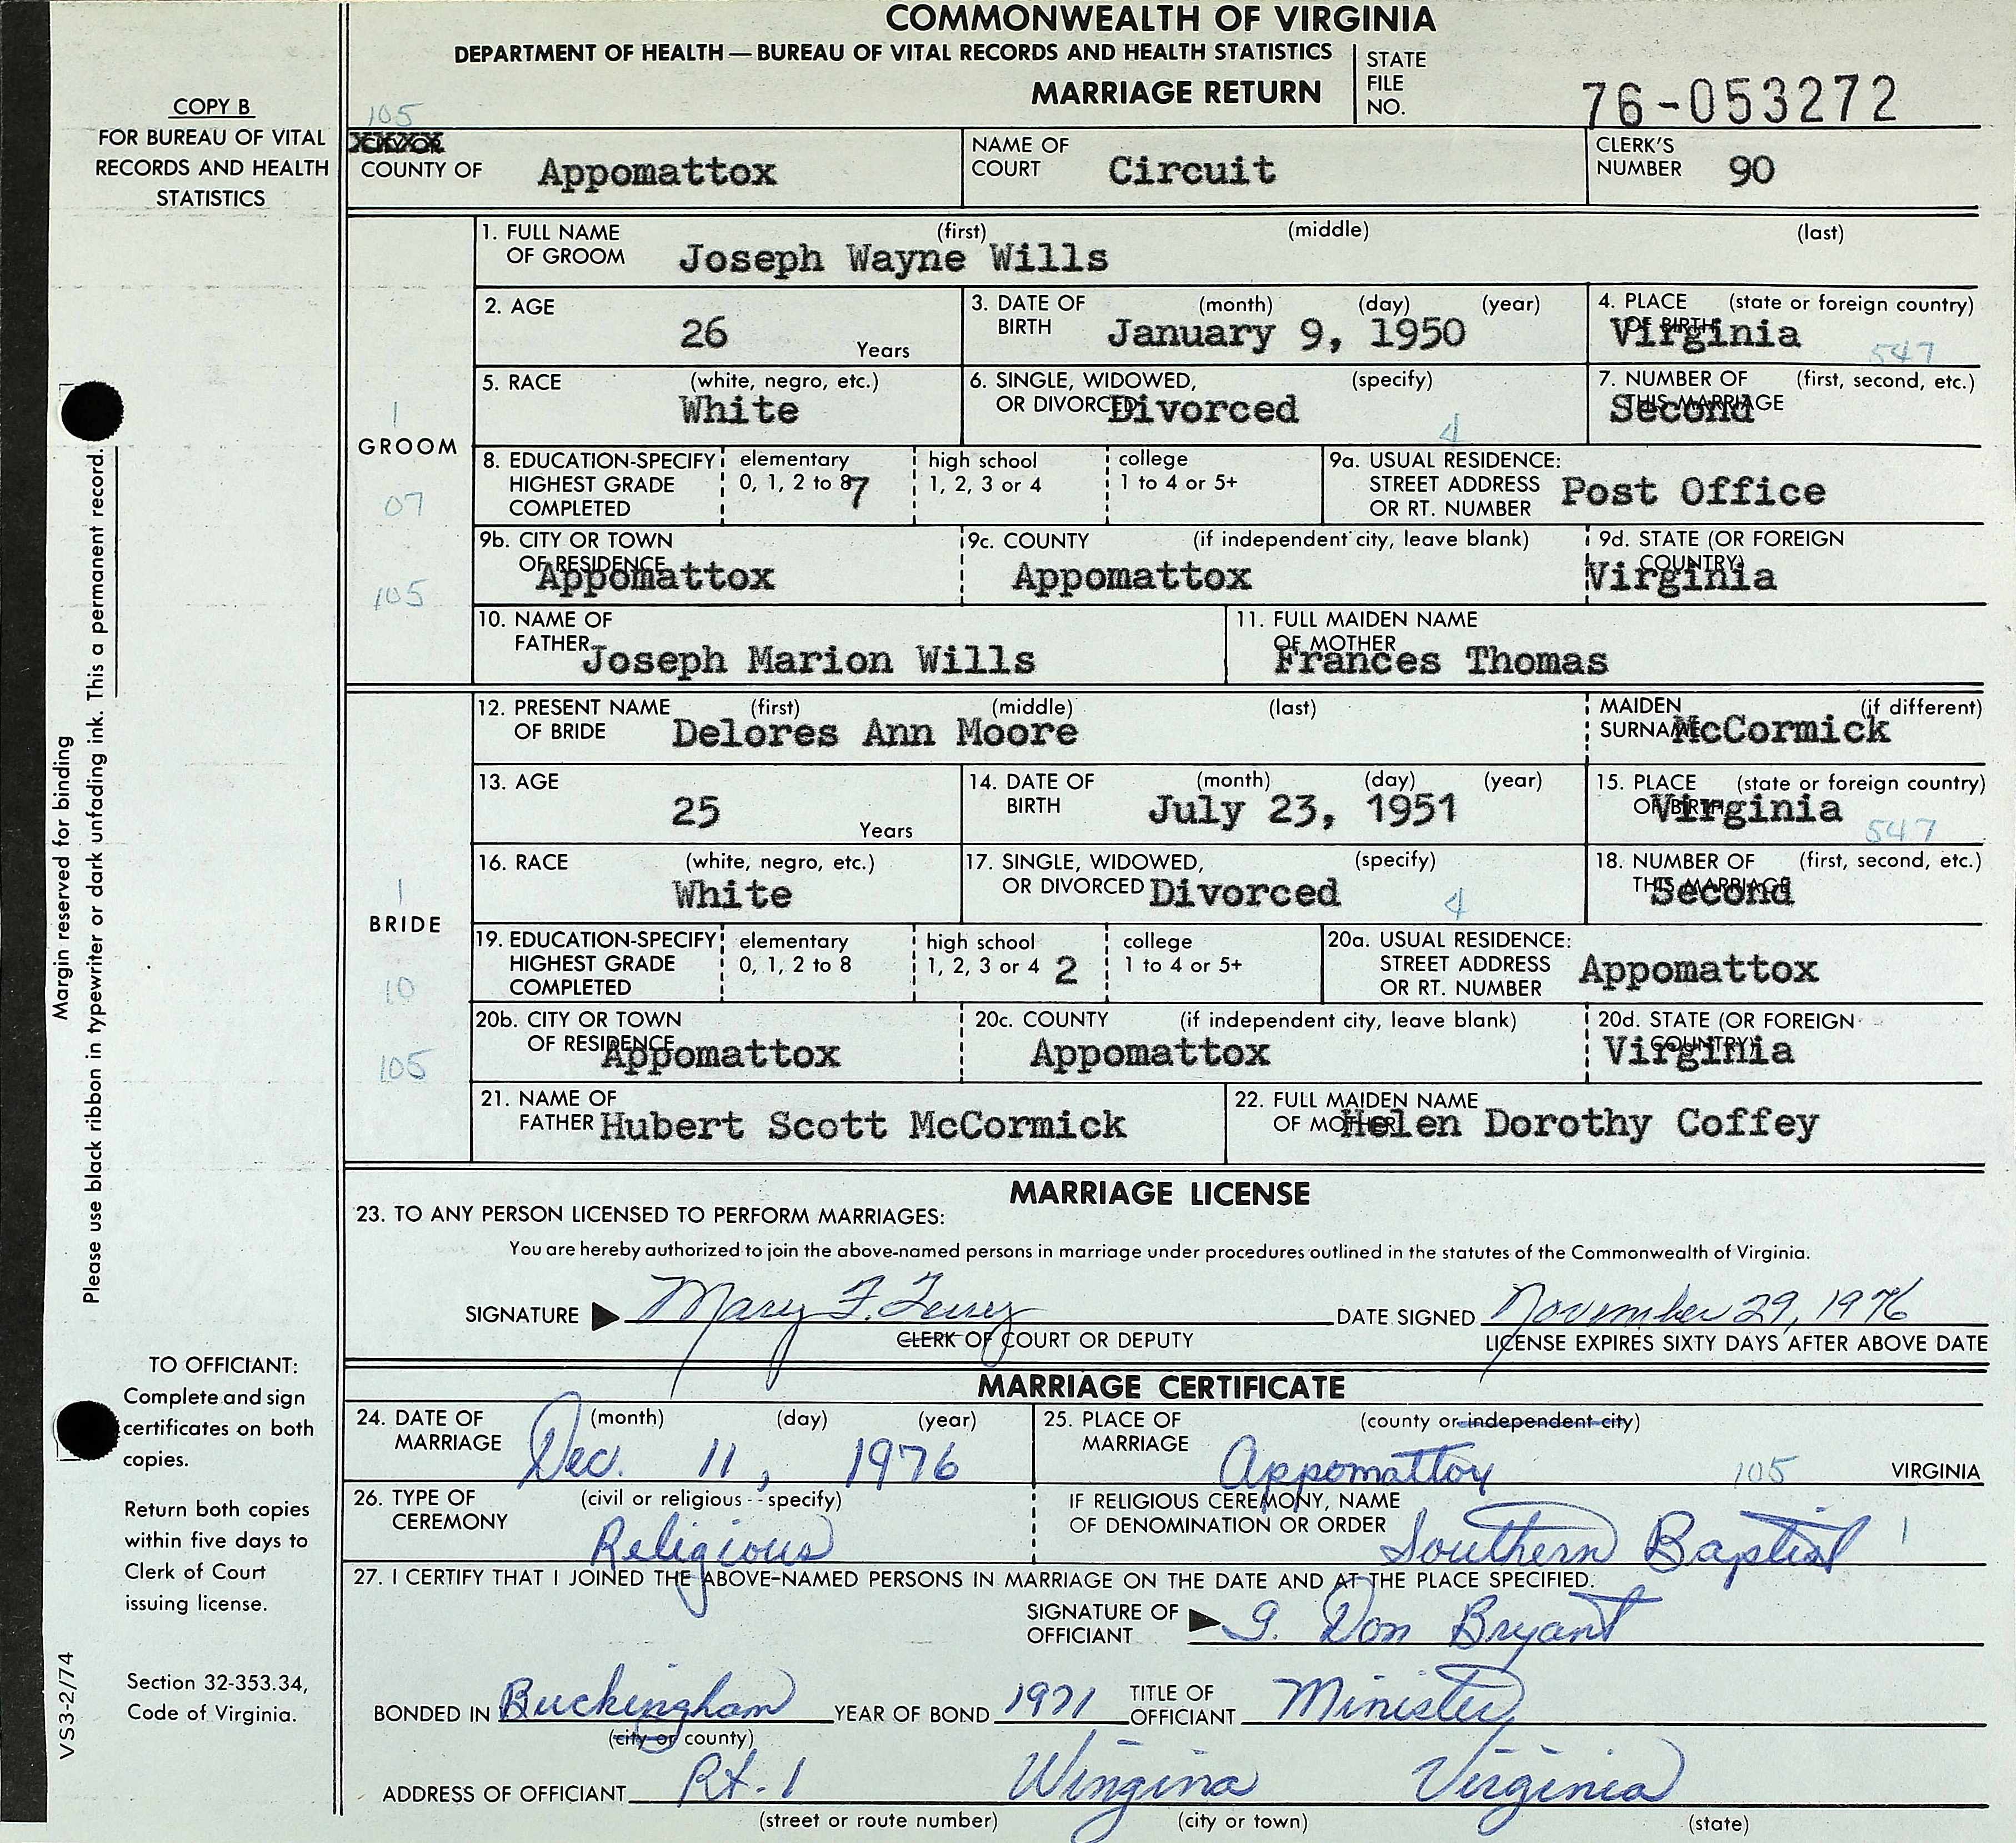 COMMONWEALTH OF VIRGINIA
DEPARTMENT OF HEALTH — BUREAU OF VITAL RECORDS AND HEALTH STATISTICS
MARRIAGE RETURN
STATE FILE NO. 76-053272
COPY B
FOR BUREAU OF VITAL
RECORDS AND HEALTH
STATISTICS
105
COUNTY OF Appomattox NAME OF COURT Circuit CLERK'S NUMBER 90
1. FULL NAME OF GROOM (first) (middle) (last) Joseph Wayne Wills
2. AGE 26 Years 3. DATE OF BIRTH (month) (day) (year) January 9, 1950 4. PLACE OF BIRTH (state or foreign country) Virginia 547
5. RACE (white, negro, etc.) White 6. SINGLE, WIDOWED, OR DIVORCED (specify) Divorced 4 7. NUMBER OF THIS MARRIAGE (first, second, etc.) Second
1
GROOM
07
105
8. EDUCATION-SPECIFY HIGHEST GRADE COMPLETED elementary 0, 1, 2 to 8 7 high school 1, 2, 3 or 4 college 1 to 4 or 5+ 9a. USUAL RESIDENCE: STREET ADDRESS OR RT. NUMBER Post Office
9b. CITY OR TOWN OF RESIDENCE Appomattox 9c. COUNTY (if independent city, leave blank) Appomattox 9d. STATE (OR FOREIGN COUNTRY) Virginia
10. NAME OF FATHER Joseph Marion Wills 11. FULL MAIDEN NAME OF MOTHER Frances Thomas
12. PRESENT NAME OF BRIDE (first) (middle) (last) Delores Ann Moore MAIDEN SURNAME (if different) McCormick
13. AGE 25 Years 14. DATE OF BIRTH (month) (day) (year) July 23, 1951 15. PLACE OF BIRTH (state or foreign country) Virginia 547
16. RACE (white, negro, etc.) White 17. SINGLE, WIDOWED, OR DIVORCED (specify) Divorced 4 18. NUMBER OF THIS MARRIAGE (first, second, etc.) Second
1
BRIDE
10
105
19. EDUCATION-SPECIFY HIGHEST GRADE COMPLETED elementary 0, 1, 2 to 8 high school 1, 2, 3 or 4 2 college 1 to 4 or 5+ 20a. USUAL RESIDENCE: STREET ADDRESS OR RT. NUMBER Appomattox
20b. CITY OR TOWN OF RESIDENCE Appomattox 20c. COUNTY (if independent city, leave blank) Appomattox 20d. STATE (OR FOREIGN COUNTRY) Virginia
21. NAME OF FATHER Hubert Scott McCormick 22. FULL MAIDEN NAME OF MOTHER Helen Dorothy Coffey
MARRIAGE LICENSE
23. TO ANY PERSON LICENSED TO PERFORM MARRIAGES:
You are hereby authorized to join the above-named persons in marriage under procedures outlined in the statutes of the Commonwealth of Virginia.
SIGNATURE Mary F. Terry DATE SIGNED November 29, 1976
CLERK OF COURT OR DEPUTY LICENSE EXPIRES SIXTY DAYS AFTER ABOVE DATE
MARRIAGE CERTIFICATE
24. DATE OF MARRIAGE (month) (day) (year) Dec. 11, 1976 25. PLACE OF MARRIAGE (county or independent city) Appomattox 105 VIRGINIA
26. TYPE OF CEREMONY (civil or religious -- specify) Religious IF RELIGIOUS CEREMONY, NAME OF DENOMINATION OR ORDER Southern Baptist 1
27. I CERTIFY THAT I JOINED THE ABOVE-NAMED PERSONS IN MARRIAGE ON THE DATE AND AT THE PLACE SPECIFIED.
SIGNATURE OF OFFICIANT G. Don Bryant
BONDED IN Buckingham YEAR OF BOND 1971 TITLE OF OFFICIANT Minister
(city or county)
ADDRESS OF OFFICIANT Rt. 1 Wingina Virginia
(street or route number) (city or town) (state)
Margin reserved for binding
Please use black ribbon in typewriter or dark unfading ink. This a permanent record.
TO OFFICIANT:
Complete and sign
certificates on both
copies.
Return both copies
within five days to
Clerk of Court
issuing license.
Section 32-353.34,
Code of Virginia.
VS3-2/74